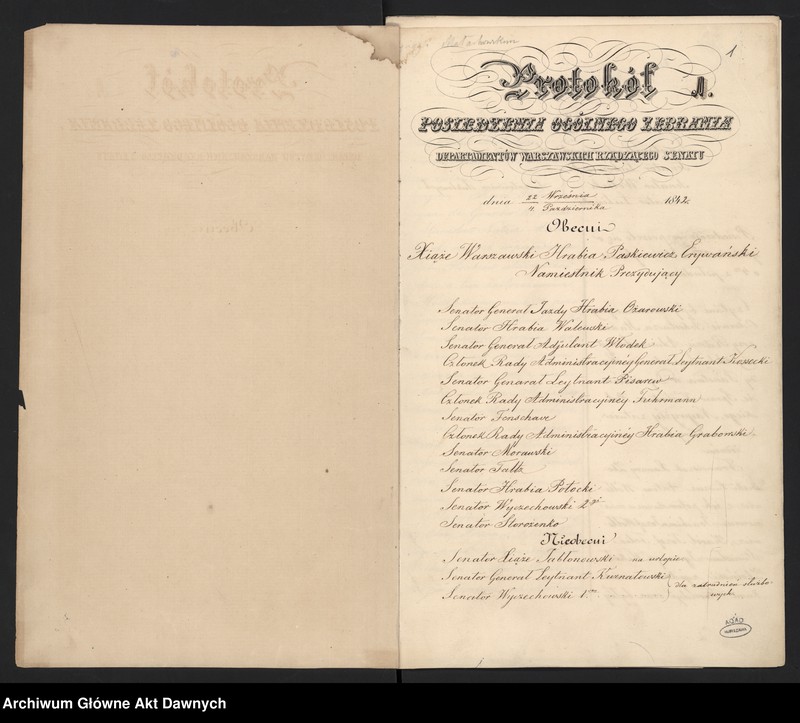 1
Protokół N.
POSIEDZENIA OGÓLNEGO ZEBRANIA
DEPARTAMENTÓW WARSZAWSKICH RZĄDZĄCEGO SENATU
dnia 22 Września / 4 Października 1842.
Obecni
Xiąże Warszawski Hrabia Paskiewicz Erywański
Namiestnik Prezydujący
Senator Generał Jazdy Hrabia Ożarowski
Senator Hrabia Walewski
Senator Generał Adjutant Włodek
Członek Rady Administracyjnéy Generał Leytnant Kossecki
Senator Generał Leytnant Pisarew
Członek Rady Administracyjnéy Fuhrmann
Senator Fenschave
Członek Rady Administracyjnéy Hrabia Grabowski
Senator Morawski
Senator Faltz
Senator Hrabia Potocki
Senator Wyczechowski 2gi
Senator Storożenko
Nieobecni
Senator Xiąże Jabłonowski na urlopie
Senator Generał Leytnant Kurnatowski
Senator Wyczechowski 1szy
dla zatrudnień służbo-
wych
AGAD
WARSZAWA
Archiwum Główne Akt Dawnych